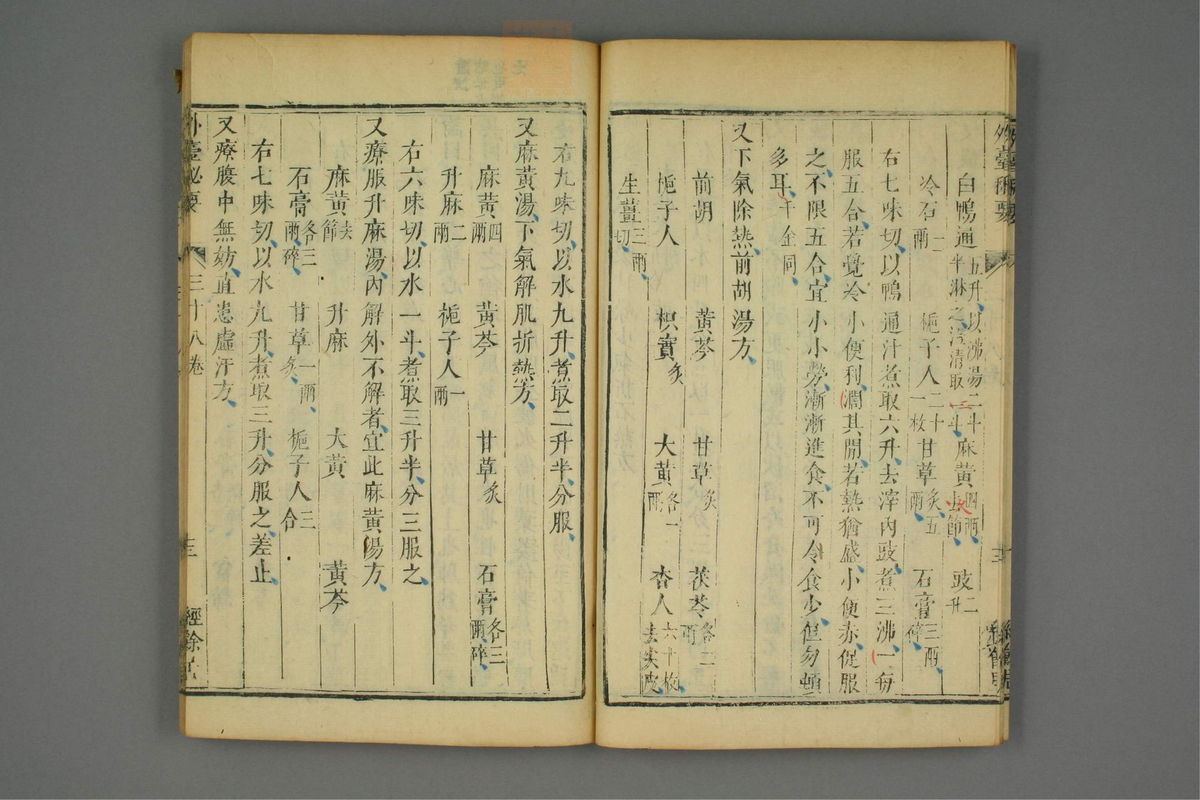 外臺秘要
白鴨通五升以沸湯二斗半淋之澄清取二斗 麻黃四兩去節 豉二升
冷石二兩 梔子人二十一枚 甘草炙五兩 石膏三兩碎
右七味切以鴨通汁煮取六升去滓內豉煮三沸一每
服五合若覺冷小便利澗其間若熱猶盛小便赤促服
之不限五合宜小小勞漸漸進食不可令食少但勿頓
多耳千金同
又下氣除熱前胡湯方
前胡 黃芩 甘草炙 茯苓各二兩
梔子人 枳實炙 大黃各一兩 杏人六十枚去尖皮
生薑三兩切
右九味切以水九升煮取二升半分服
又麻黃湯下氣解肌折熱方
麻黃四兩 黃芩 甘草炙 石膏各三兩碎
升麻二兩 梔子人一兩
右六味切以水一斗煮取三升半分三服之
又療脹升麻湯內解外不解者宜此麻黃湯方
麻黃去節 升麻 大黃 黃芩
石膏各三兩碎 甘草一兩炙 梔子人三合
右七味切以水九升煮取三升分服之差止
又療腹中無妨直患虛汗方
外臺秘要 三十八卷 十三 經餘居